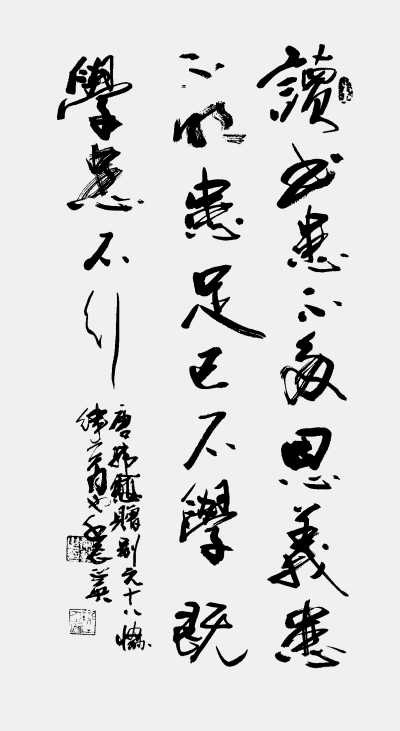 讀書患不多思義患
不明患足已不學既
學患不行
唐韓愈贈別元十八協
律六首